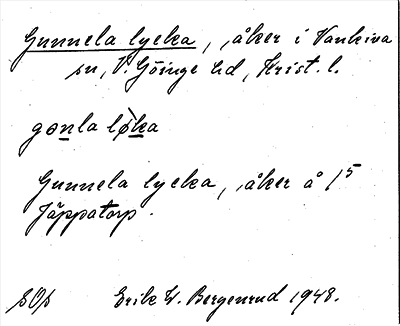 Gunnela lycka, åker i Vankiva
sn, V. Göinge hd, Krist. l.
gonla løka
Gunnela lycka, åker å 1⁵
Jäppatorp.
Erik W. Bergenrud 1948.